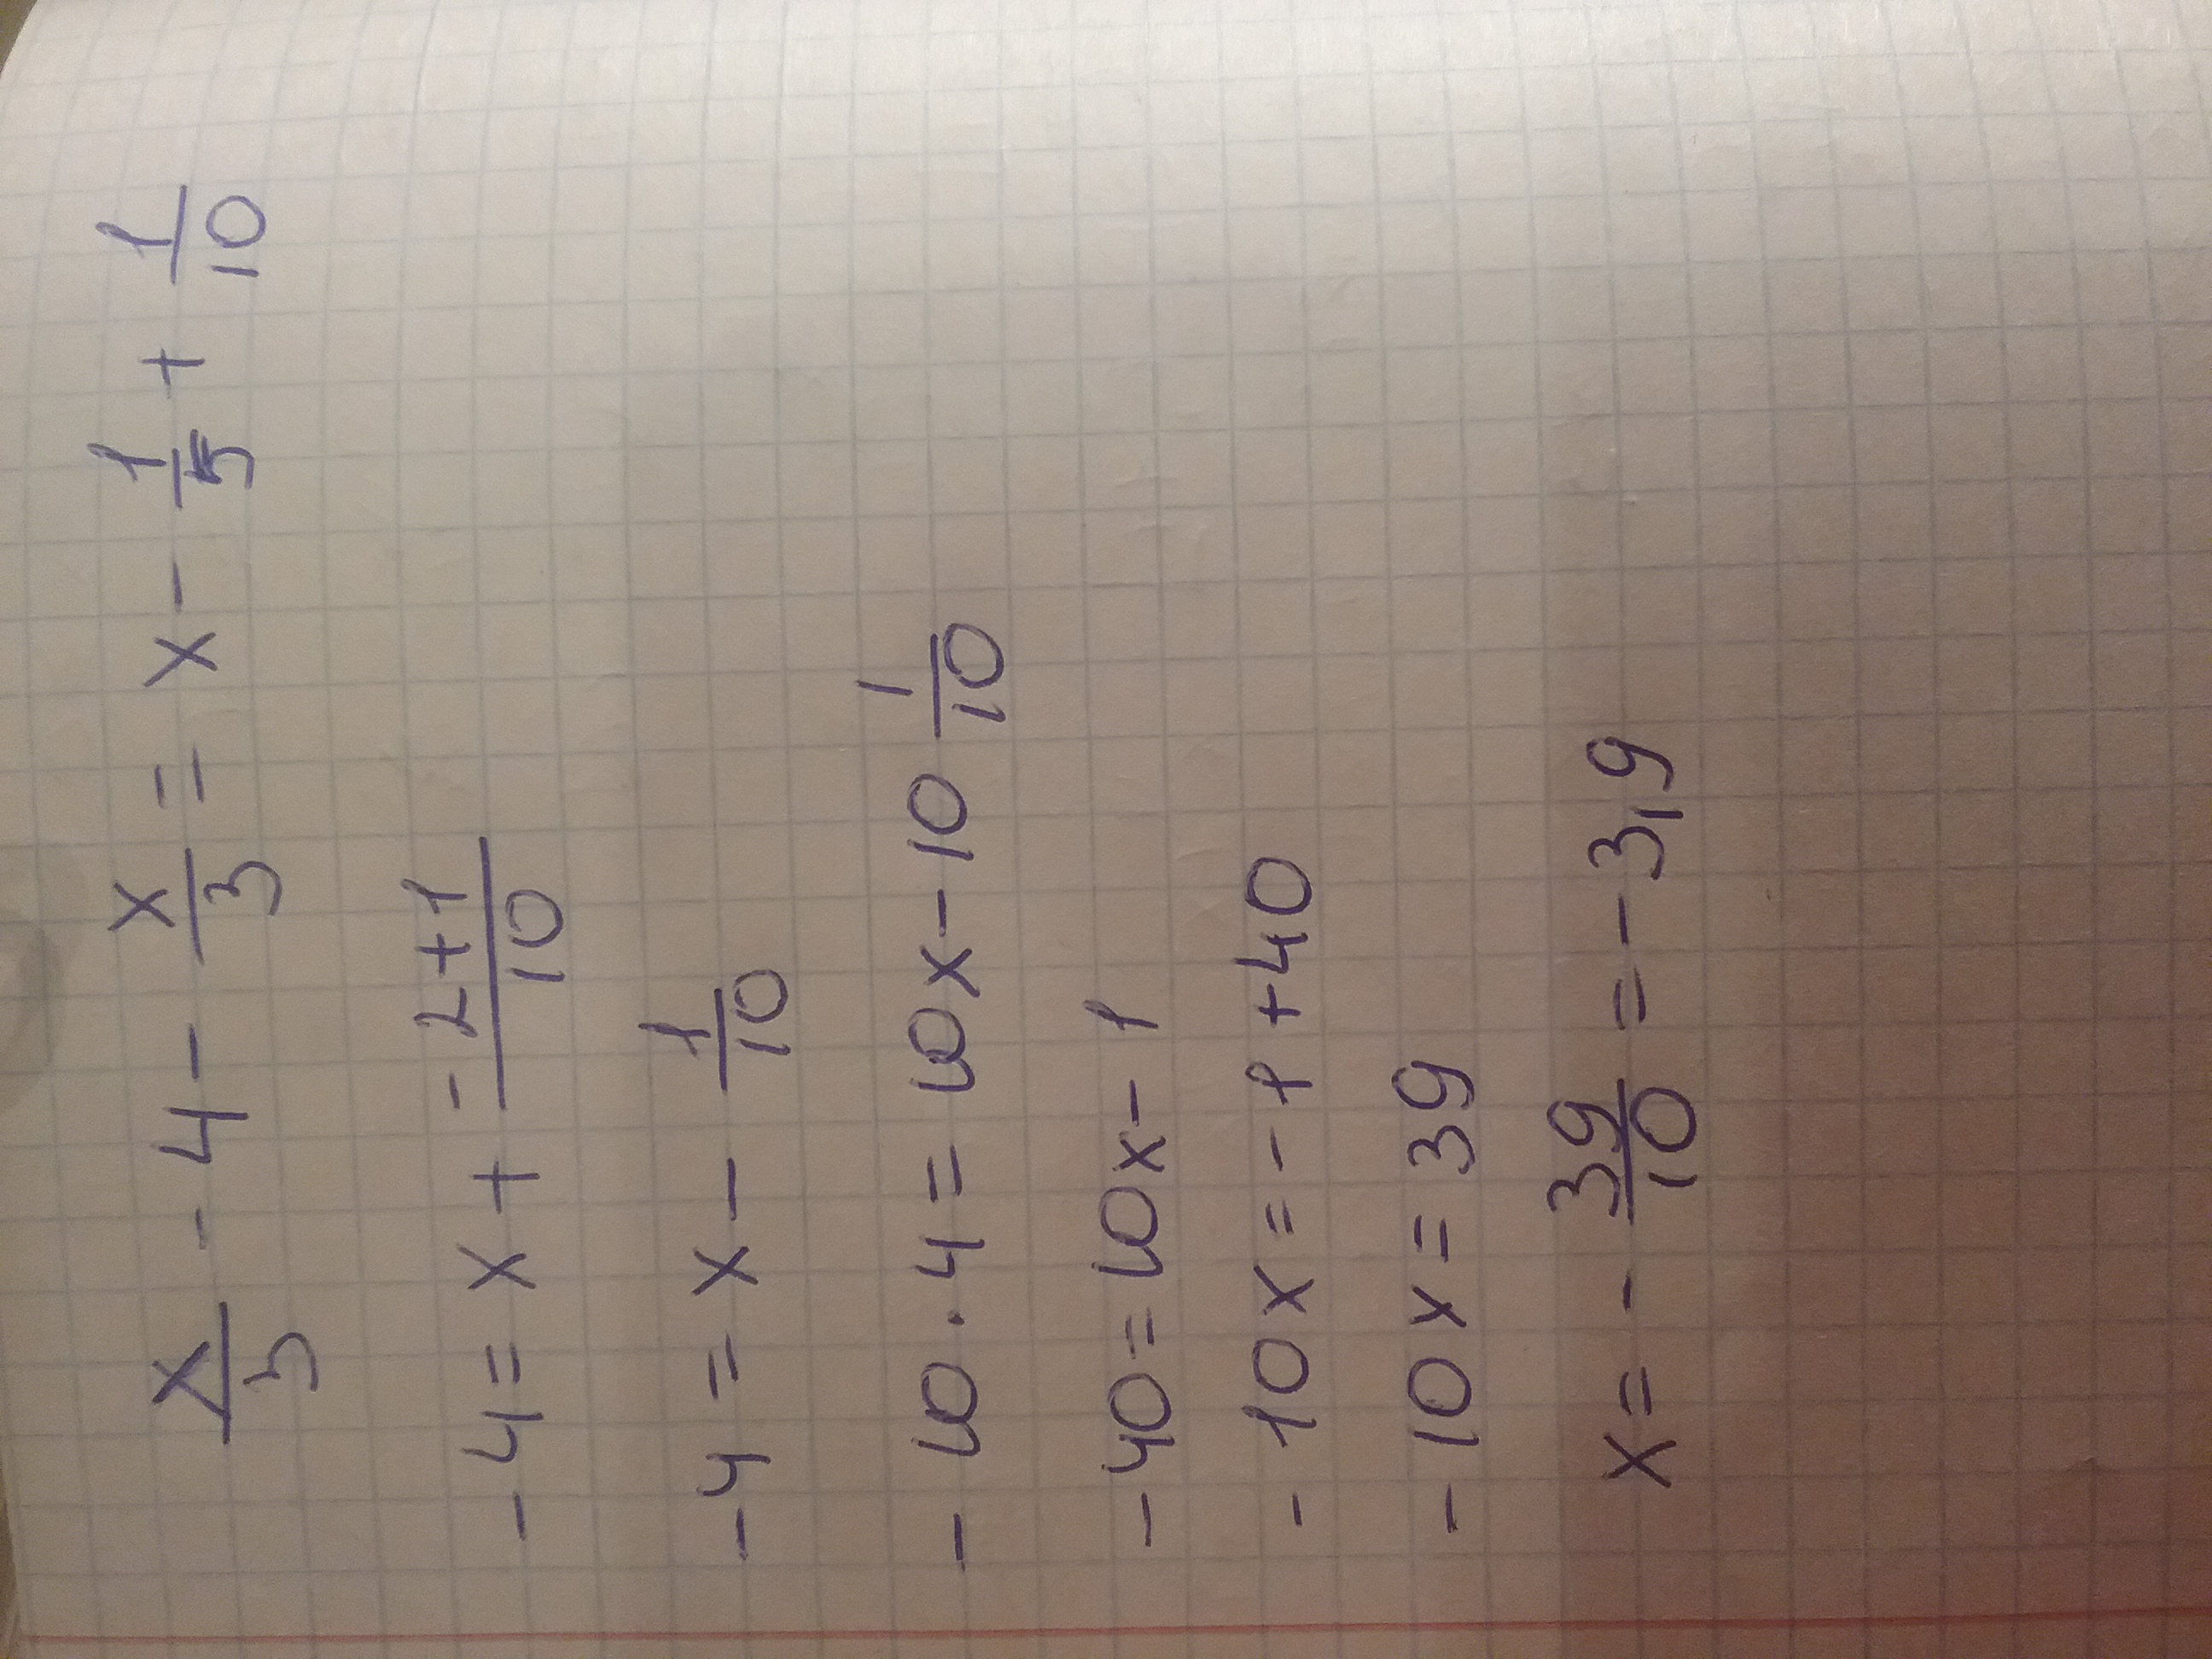 x/3 - 4 - x/3 = x - 1/5 + 1/10
-4 = x + -2+1/10
-4 = x - 1/10
-10 · 4 = 10x - 10 1/10
-40 = 10x - 1
-10x = -1 + 40
-10x = 39
x = - 39/10 = -3,9